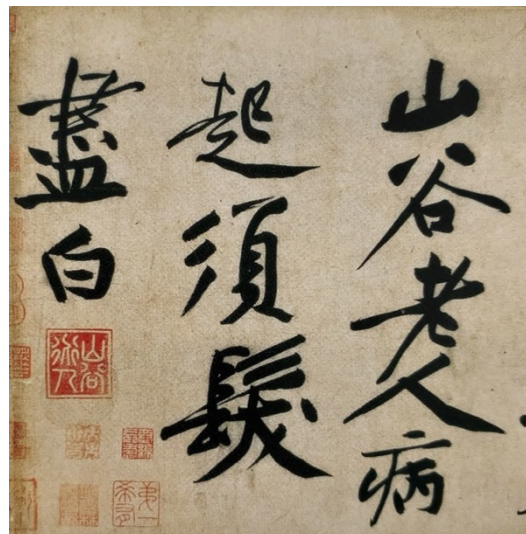 山谷老人病
起須髮
盡白
山谷